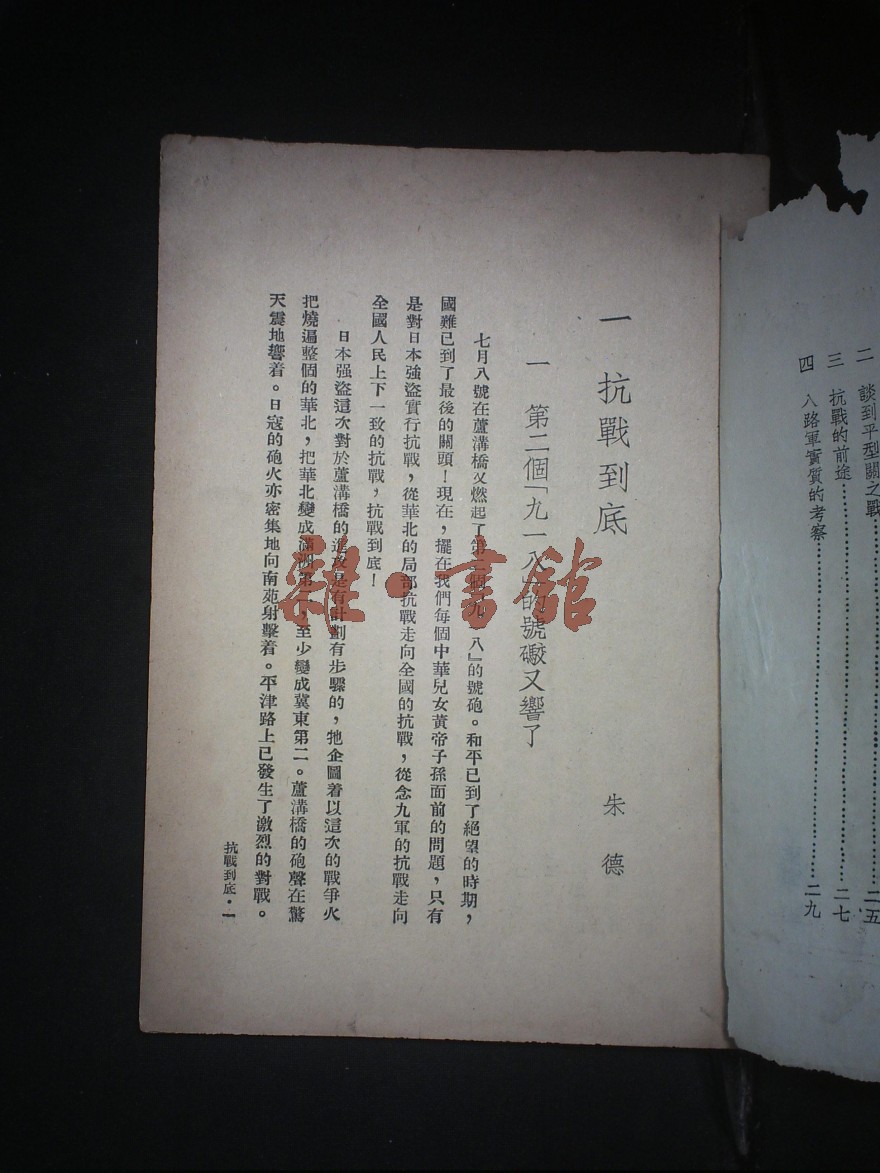 二　談到平型關之戰………二五
三　抗戰的前途………二七
四　八路軍實質的考察………二九
一　抗戰到底
朱　德
一　第二個「九一八」的號礮又響了
七月八號在蘆溝橋又燃起了第二個「九一八」的號砲。和平已到了絕望的時期，
國難已到了最後的關頭！現在，擺在我們每個中華兒女黃帝子孫面前的問題，只有
是對日本強盜實行抗戰，從華北的局部抗戰走向全國的抗戰，從念九軍的抗戰走向
全國人民上下一致的抗戰，抗戰到底！
日本强盜這次對於蘆溝橋的進攻是有計劃有步驟的，牠企圖着以這次的戰爭火
把燒遍整個的華北，把華北變成滿洲第二，至少變成冀東第二。蘆溝橋的砲聲在驚
天震地響着。日寇的砲火亦密集地向南苑射擊着。平津路上已發生了激烈的對戰。
抗戰到底・一
雜・書館